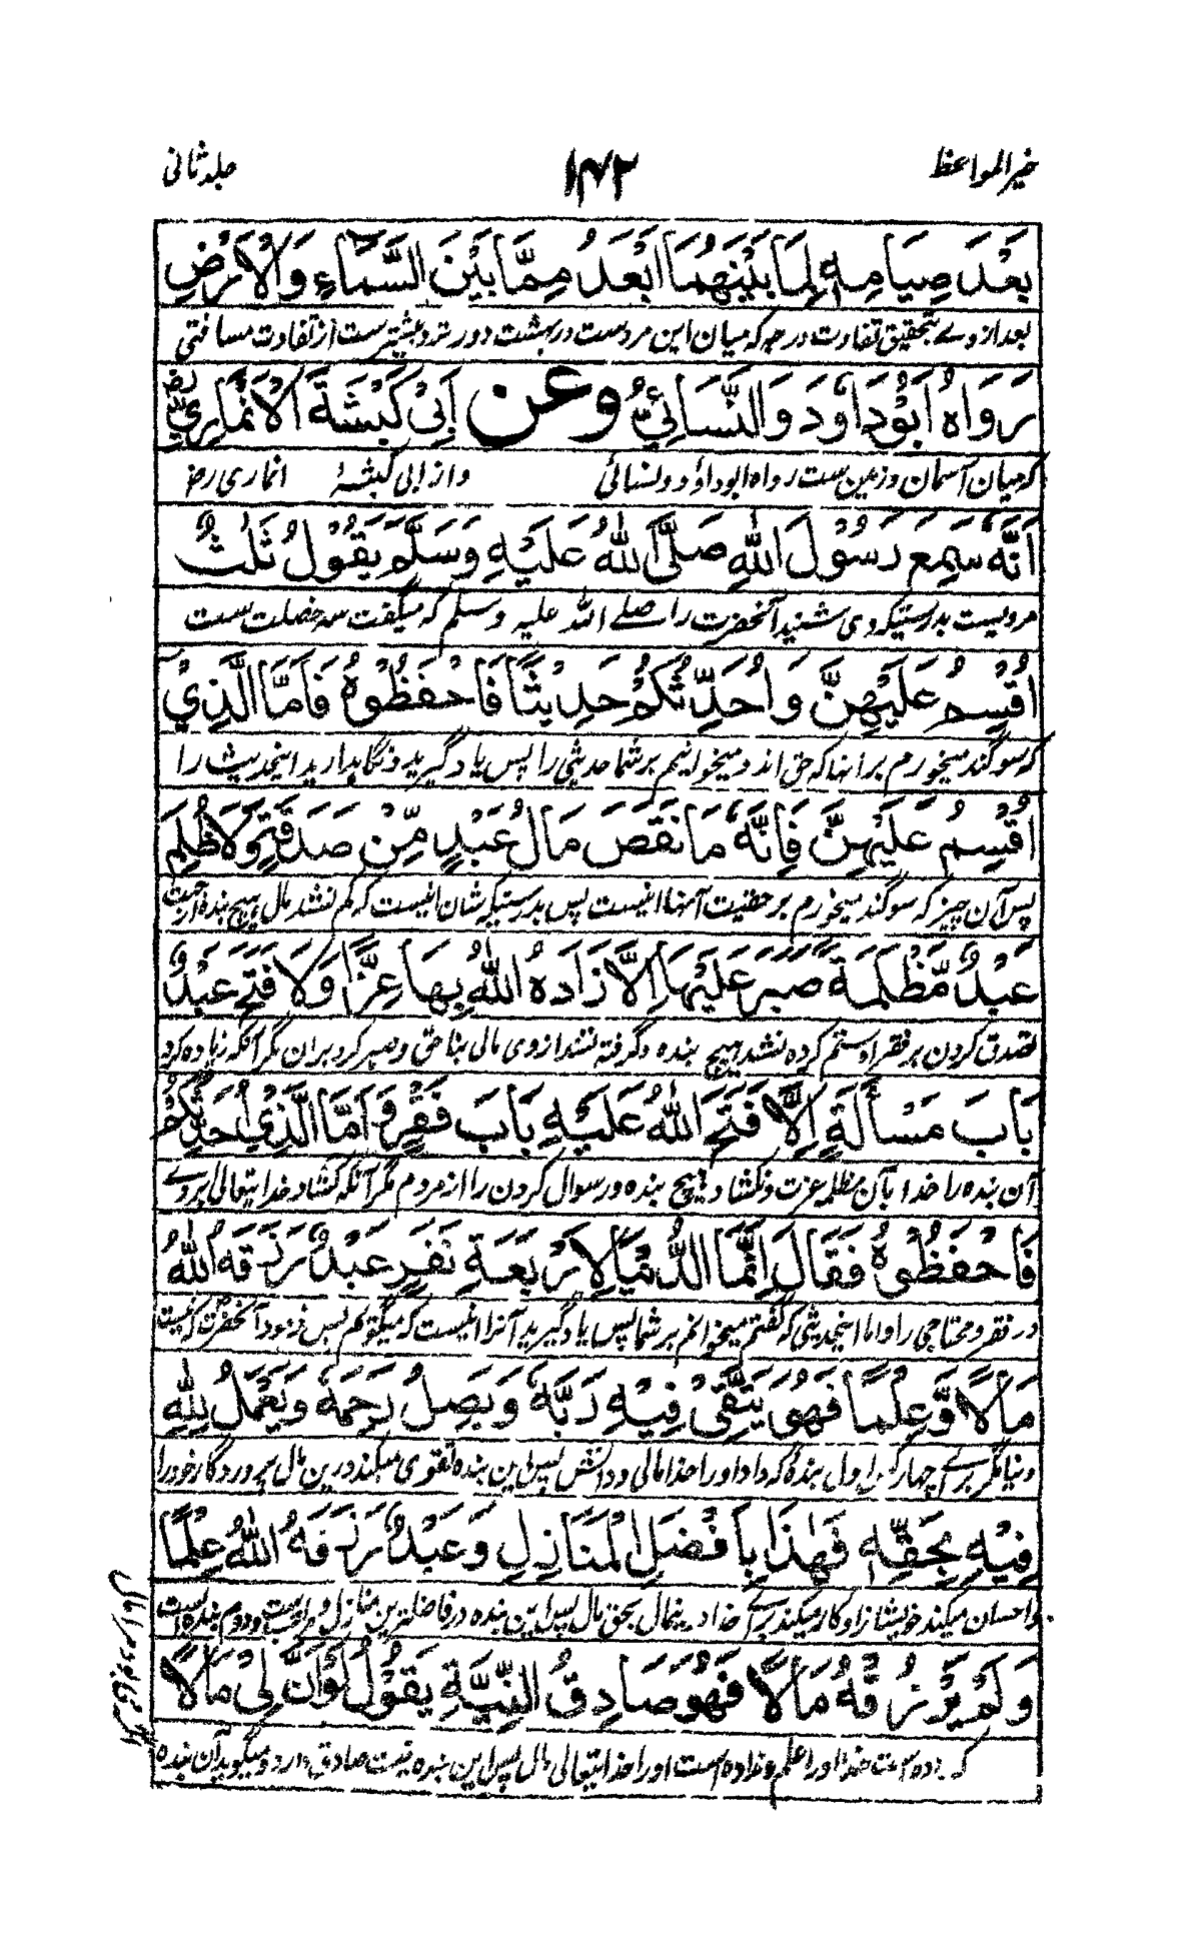 خیر المواعظ
۱۴۲
جلد ثانی
بَعْدَ صِيَامِهٖ لِمَا بَيْنَهُمَا اَبْعَدُ مِمَّا بَيْنَ السَّمَاءِ وَالْاَرْضِ
بعد از وے بتحقیق تفاوت درجه که میان این مردست در بهشت دورتر و بیشترست از تفاوت مسافتی
رَوَاهُ اَبُوْدَاوٗدَ وَالنَّسَائِيُّ وعن اَبِيْ كَبْشَةَ الْاَنْمَارِيِّ رض
که میان آسمان و زمین ست رواه ابوداؤد و نسائی و از ابی کبشهٔ انماری رض
اَنَّهٗ سَمِعَ رَسُوْلَ اللهِ صَلَّى اللهُ عَلَيْهِ وَسَلَّمَ يَقُوْلُ ثَلٰثٌ
مرویست بدرستیکه وی شنید آنحضرت را صلے الله علیه وسلم که میگفت سه خصلت ست
اُقْسِمُ عَلَيْهِنَّ وَاُحَدِّثُكُمْ حَدِيْثًا فَاحْفَظُوْهُ فَاَمَّا الَّذِيْ
که سوگند میخورم بر انها که حق اند و میخوانیم بر شما حدیثی را پس یاد گیرید و نگاهدارید اینحدیث را
اُقْسِمُ عَلَيْهِنَّ فَاِنَّهٗ مَا نَقَصَ مَالُ عَبْدٍ مِّنْ صَدَقَةٍ وَلَا ظُلِمَ
پس آن چیز که سوگند میخورم بر حقیت آنها اینست پس بدرستیکه شان اینست که کم نشد مال هیچ بنده از جهت
عَبْدٌ مَّظْلِمَةً صَبَرَ عَلَيْهَا اِلَّا زَادَهُ اللهُ بِهَا عِزًّا وَلَا فَتَحَ عَبْدٌ
تصدق کردن بر فقرا و ستم کرده نشد هیچ بنده و گرفته نشد از وی مالی بناحق و صبر کرد بر ان مگر آنکه زیاده کرد
بَابَ مَسْأَلَةٍ اِلَّا فَتَحَ اللهُ عَلَيْهِ بَابَ فَقْرٍ وَاَمَّا الَّذِيْ اُحَدِّثُكُمْ
آن بنده را خدا بآن مظلمه عزت و نکشاد هیچ بنده در سوال کردن را از مردم مگر آنکه کشاد خدایتعالی بروے
فَاحْفَظُوْهُ فَقَالَ اِنَّمَا الدُّنْيَا لِاَرْبَعَةِ نَفَرٍ عَبْدٌ رَزَقَهُ اللهُ
در فقر و محتاجی را و اما اینحدیثی که گفتم میخوانم بر شما پس یاد گیرید آنرا اینست که میگویم پس فرمود آنحضرت که نیست
مَالًا وَّعِلْمًا فَهُوَ يَتَّقِيْ فِيْهِ رَبَّهٗ وَيَصِلُ رَحِمَهٗ وَيَعْمَلُ لِلّٰهِ
دنیا مگر برے چهار کس اول بندهٔ که داد او را خدا مالی و دانش پس این بنده تقوی میکند درین مال پروردگار خود را
فِيْهِ بِحَقِّهٖ فَهٰذَا بِاَفْضَلِ الْمَنَازِلِ وَعَبْدٌ رَزَقَهُ اللهُ عِلْمًا
و احسان میکند خویشان را و کار میکند برے خدا درینمال بحق مال پس این بنده در فاضلترین منازل و مراتب ست و دوم بنده است
وَلَمْ يَرْزُقْهُ مَالًا فَهُوَ صَادِقُ النِّيَّةِ يَقُوْلُ لَوْ اَنَّ لِيْ مَالًا
که داده است خدا او را علم و نداده است او را خدایتعالی مال پس این بنده نیت صادق دارد و میگوید آن بنده